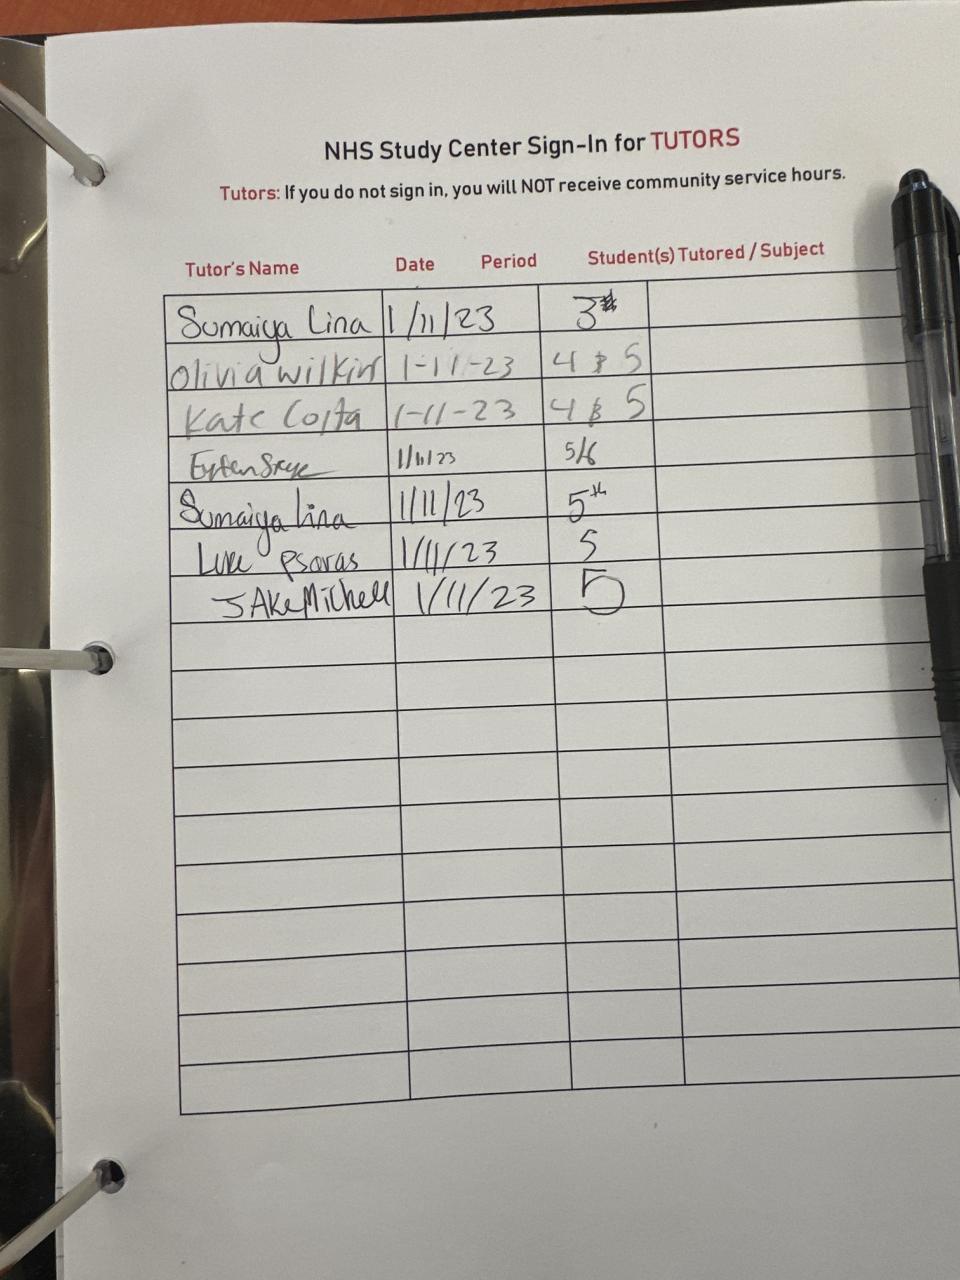 NHS Study Center Sign-In for TUTORS
Tutors: If you do not sign in, you will NOT receive community service hours.
Tutor's Name Date Period Student(s) Tutored / Subject
Sumaiya Lina 1/11/23 3
Olivia Wilkins 1-11-23 4 & 5
Kate Costa 1-11-23 4 & 5
1/11/23 5/6
Sumaiya Lina 1/11/23 5th
Luke Psaras 1/11/23 5
JAKe Mitchell 1/11/23 5